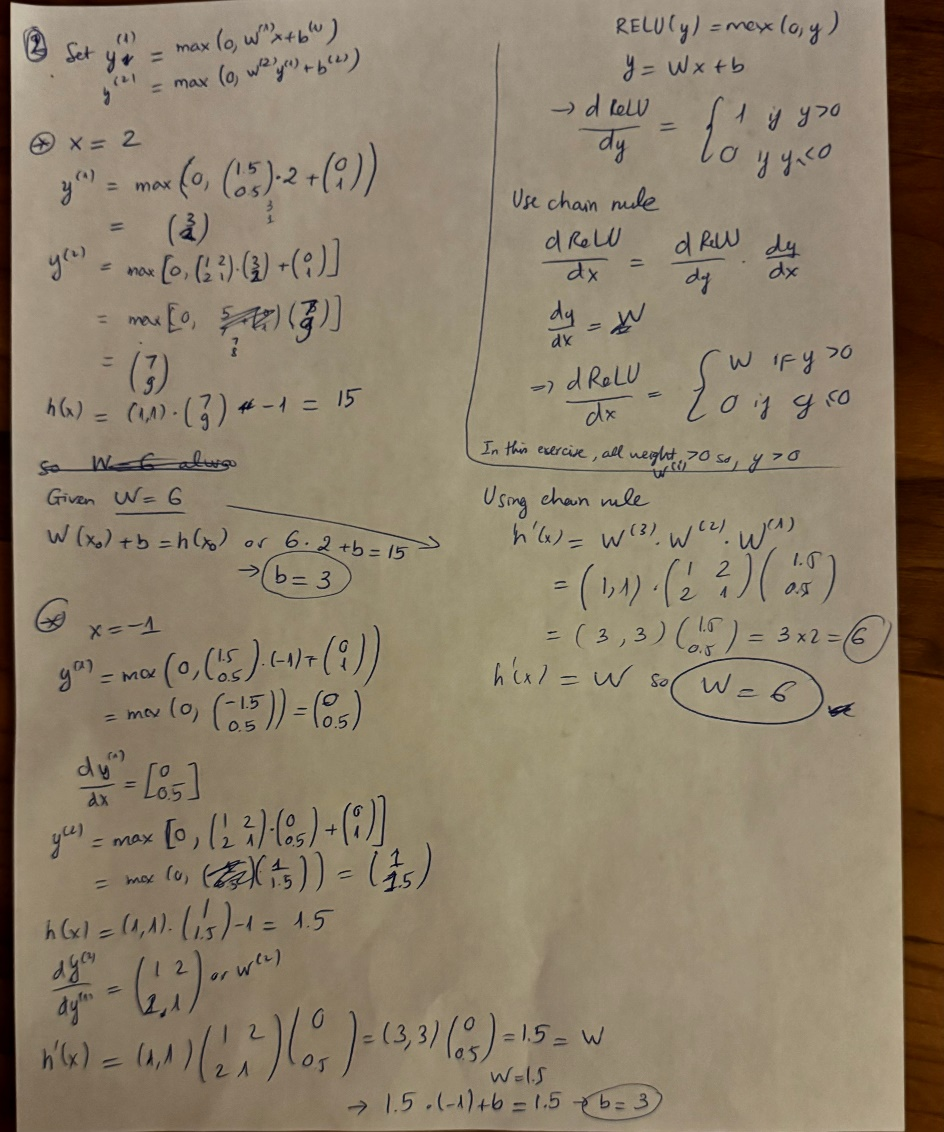 ② Set y^(1) = max(0, W^(1)x + b^(1))
y^(2) = max(0, W^(2)y^(1) + b^(2))
⊛ x = 2
y^(1) = max(0, (1.5 0.5)·2 + (0 1))
3
1
= (3 2)
y^(2) = max[0, (1 2 2 1)·(3 2) + (0 1)]
= max[0, (7 9)]
7
8
= (7 9)
h(x) = (1,1)·(7 9) - 1 = 15
so W = 6 always
Given W = 6
W(x₀) + b = h(x₀) or 6·2 + b = 15
→ b = 3
⊛ x = -1
y^(1) = max(0, (1.5 0.5)·(-1) + (0 1))
= max(0, (-1.5 0.5)) = (0 0.5)
dy^(1)/dx = [0 0.5]
y^(2) = max[0, (1 2 2 1)·(0 0.5) + (0 1)]
= max(0, (1 1.5)) = (1 1.5)
h(x) = (1,1)·(1 1.5) - 1 = 1.5
dy^(2)/dy^(1) = (1 2 2 1) or W^(2)
h'(x) = (1,1)(1 2 2 1)(0 0.5) = (3,3)(0 0.5) = 1.5 = W
W = 1.5
→ 1.5·(-1) + b = 1.5 → b = 3
RELU(y) = max(0, y)
y = Wx + b
→ d ReLU/dy = { 1 if y > 0
0 if y ≤ 0
Use chain rule
d ReLU/dx = d ReLU/dy · dy/dx
dy/dx = W
=> d ReLU/dx = { W if y > 0
0 if y ≤ 0
In this exercise, all weight W^(i) > 0 so, y > 0
Using chain rule
h'(x) = W^(3)·W^(2)·W^(1)
= (1,1)·(1 2 2 1)(1.5 0.5)
= (3,3)(1.5 0.5) = 3x2 = 6
h'(x) = W so W = 6